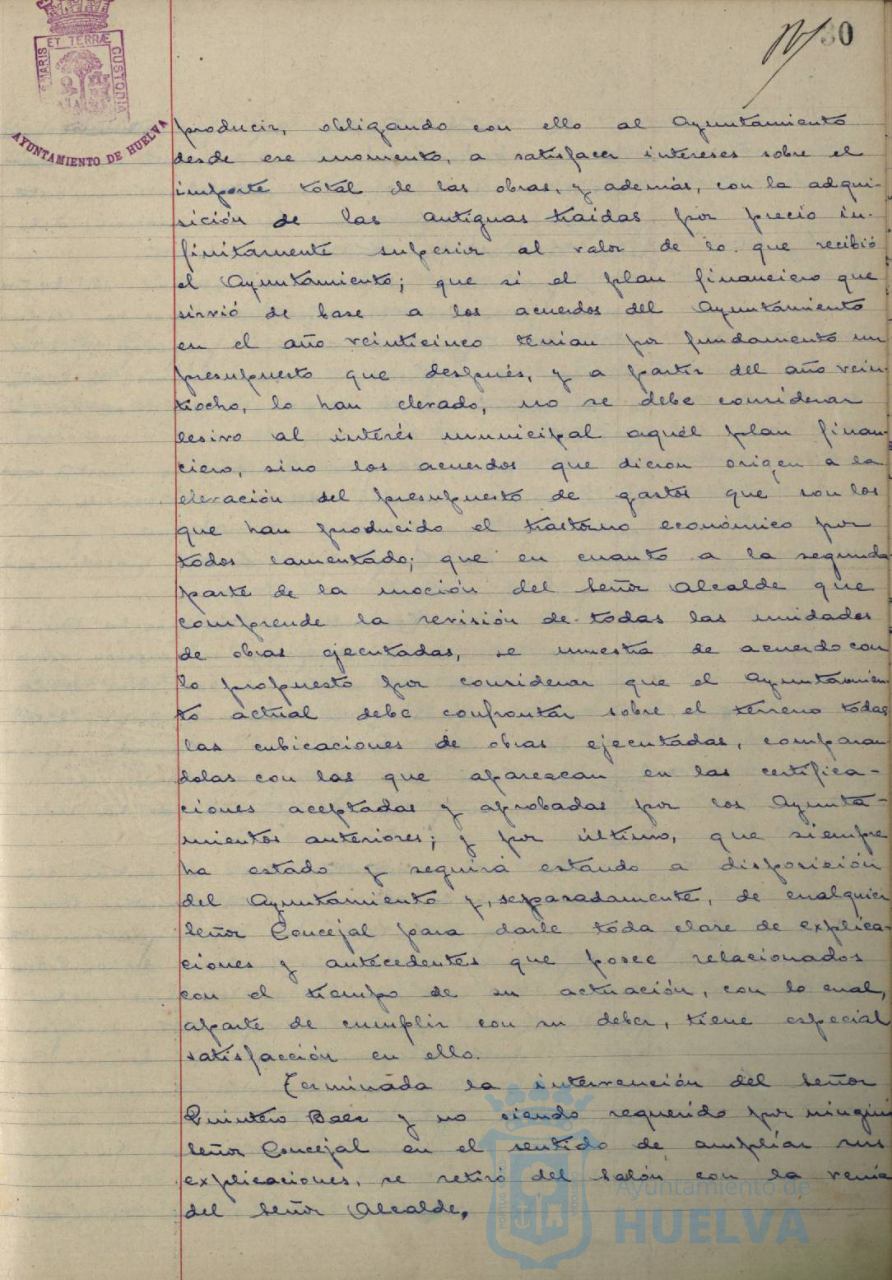 30
MARIS ET TERRÆ CUSTODIA
AYUNTAMIENTO DE HUELVA
producir, obligando con ello al Ayuntamiento
desde ese momento, a satisfacer intereses sobre el
importe total de las obras, y además, con la adqui-
sición de las antiguas traidas por precio in-
finitamente superior al valor de lo que recibió
el Ayuntamiento; que si el plan financiero que
sirvió de base a los acuerdos del Ayuntamiento
en el año veinticinco tenian por fundamento un
presupuesto que después, y a partir del año vein
tiocho, lo han elevado, no se debe considerar
lesivo al interés municipal aquél plan finan-
ciero, sino los acuerdos que dieron origen a la
elevación del presupuesto de gastos que son los
que han producido el trastorno económico por
todos lamentado; que en cuanto a la segunda
parte de la moción del Señor Alcalde que
comprende la revisión de todas las unidades
de obras ejecutadas, se muestra de acuerdo con
lo propuesto por considerar que el Ayuntamien
to actual debe confrontar sobre el terreno todas
las cubicaciones de obras ejecutadas, comparan
dolas con las que aparezcan en las certifica-
ciones aceptadas y aprobadas por los Ayunta-
mientos anteriores; y por último, que siempre
ha estado y seguirá estando a disposición
del Ayuntamiento y, separadamente, de cualquier
Señor Concejal para darle toda clase de explica-
ciones y antecedentes que posee relacionados
con el tiempo de su actuación, con lo cual,
aparte de cumplir con su deber, tiene especial
satisfacción en ello.
Terminada la intervención del Señor
Quintero Baez y no siendo requerido por ningún
Señor Concejal en el sentido de ampliar sus
explicaciones, se retiró del Salón con la venia
del Señor Alcalde.
Ayuntamiento de
HUELVA